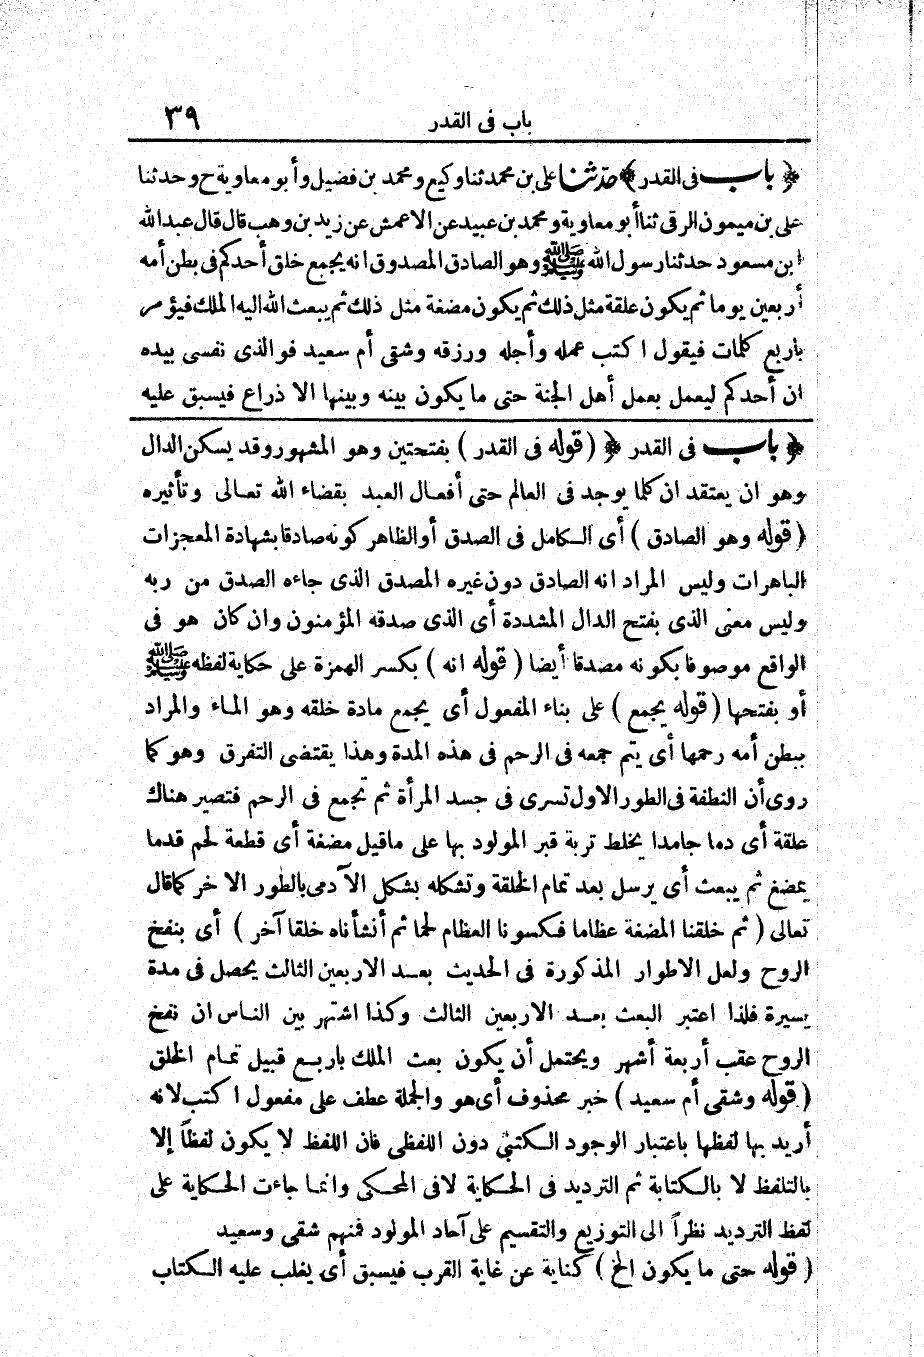 باب فى القدر ٣٩
﴿ باب فى القدر ﴾ حدثنا على بن محمد ثنا وكيع ومحمد بن فضيل وأبو معاوية ح وحدثنا
على بن ميمون الرقى ثنا أبو معاوية ومحمد بن عبيد عن الاعمش عن زيد بن وهب قال قال عبدالله
ابن مسعود حدثنا رسول الله ﷺ وهو الصادق المصدوق انه يجمع خلق أحدكم فى بطن أمه
أربعين يوما ثم يكون علقة مثل ذلك ثم يكون مضغة مثل ذلك ثم يبعث الله اليه الملك فيؤمر
باربع كلمات فيقول اكتب عمله وأجله ورزقه وشقى أم سعيد فوالذى نفسى بيده
ان أحدكم ليعمل بعمل أهل الجنة حتى ما يكون بينه وبينها الا ذراع فيسبق عليه
﴿ باب فى القدر ﴾ ( قوله فى القدر ) بفتحتين وهو المشهور وقد يسكن الدال
وهو ان يعتقد ان كلما يوجد فى العالم حتى أفعال العبد بقضاء الله تعالى وتأثيره
( قوله وهو الصادق ) أى الكامل فى الصدق أو الظاهر كونه صادقا بشهادة المعجزات
الباهرات وليس المراد انه الصادق دون غيره المصدق الذى جاءه الصدق من ربه
وليس معنى الذى بفتح الدال المشددة أى الذى صدقه المؤمنون وان كان هو فى
الواقع موصوفا بكونه مصدقا أيضا ( قوله انه ) بكسر الهمزة على حكاية لفظه ﷺ
أو بفتحها ( قوله يجمع ) على بناء المفعول أى يجمع مادة خلقه وهو الماء والمراد
ببطن أمه رحمها أى يتم جمعه فى الرحم فى هذه المدة وهذا يقتضى التفرق وهو كما
روى أن النطفة فى الطور الاول تسرى فى جسد المرأة ثم تجمع فى الرحم فتصير هناك
علقة أى دما جامدا يخلط تربة قبر المولود بها على ماقيل مضغة أى قطعة لحم قدما
يمضغ ثم يبعث أى يرسل بعد تمام الخلقة وتشكله بشكل الآدمى بالطور الاخر كما قال
تعالى ( ثم خلقنا المضغة عظاما فكسونا العظام لحما ثم أنشأناه خلقا آخر ) أى بنفخ
الروح ولعل الاطوار المذكورة فى الحديث بعد الاربعين الثالث يحصل فى مدة
يسيرة فلذا اعتبر البعث بعد الاربعين الثالث وكذا اشتهر بين الناس ان نفخ
الروح عقب أربعة أشهر ويحتمل أن يكون بعث الملك باربع قبيل تمام الخلق
( قوله وشقى أم سعيد ) خبر محذوف أى هو والجملة عطف على مفعول اكتب لانه
أريد بها لفظها باعتبار الوجود الكتبى دون اللفظى فان اللفظ لا يكون لفظاً إلا
بالتلفظ لا بالكتابة ثم الترديد فى الحكاية لافى المحكى وانما جاءت الحكاية على
لفظ الترديد نظراً الى التوزيع والتقسيم على آحاد المولود فمنهم شقى وسعيد
( قوله حتى ما يكون الخ ) كناية عن غاية القرب فيسبق أى يغلب عليه الكتاب